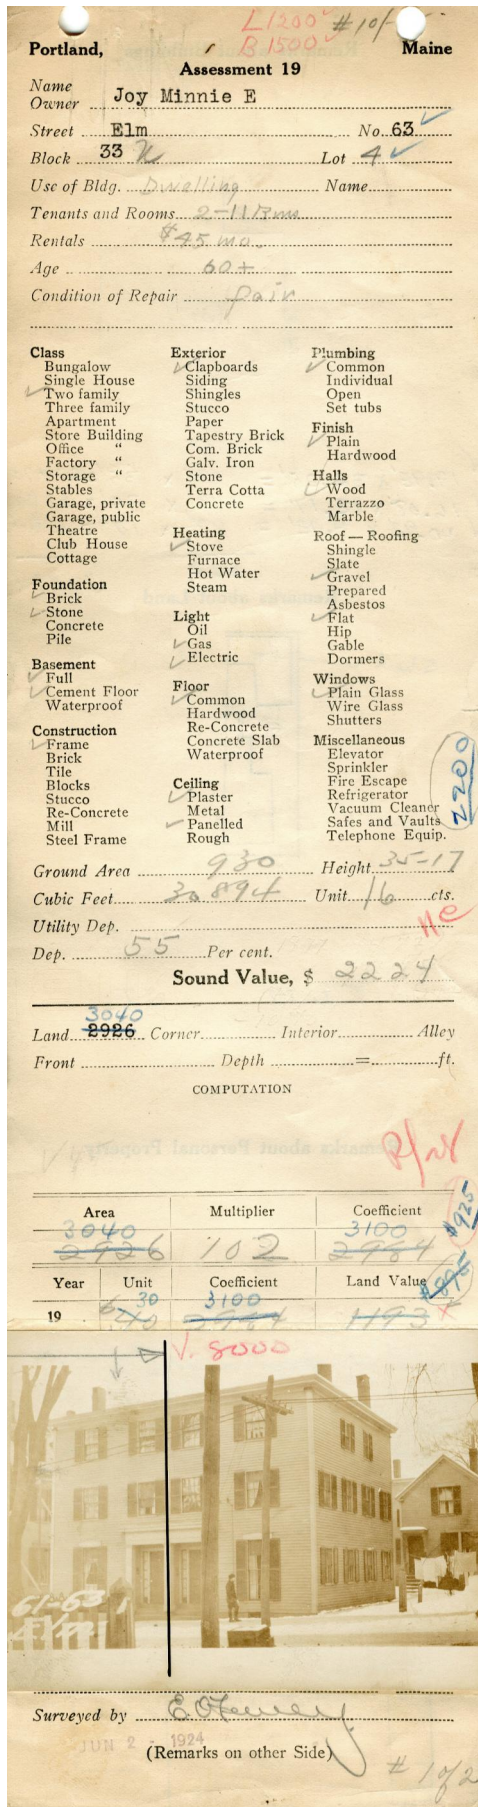 L 1200 # 10/-
B 1500
Portland, Maine
Assessment 19
Name
Owner Joy Minnie E
Street Elm No. 63
Block 33 N Lot 4
Use of Bldg. Dwelling Name
Tenants and Rooms 2-11 Rms
Rentals $45 mo.
Age 60+
Condition of Repair fair
Class
Bungalow
Single House
Two family
Three family
Apartment
Store Building
Office "
Factory "
Storage "
Stables
Garage, private
Garage, public
Theatre
Club House
Cottage
Foundation
Brick
Stone
Concrete
Pile
Basement
Full
Cement Floor
Waterproof
Construction
Frame
Brick
Tile
Blocks
Stucco
Re-Concrete
Mill
Steel Frame
Exterior
Clapboards
Siding
Shingles
Stucco
Paper
Tapestry Brick
Com. Brick
Galv. Iron
Stone
Terra Cotta
Concrete
Heating
Stove
Furnace
Hot Water
Steam
Light
Oil
Gas
Electric
Floor
Common
Hardwood
Re-Concrete
Concrete Slab
Waterproof
Ceiling
Plaster
Metal
Panelled
Rough
Plumbing
Common
Individual
Open
Set tubs
Finish
Plain
Hardwood
Halls
Wood
Terrazzo
Marble
Roof — Roofing
Shingle
Slate
Gravel
Prepared
Asbestos
Flat
Hip
Gable
Dormers
Windows
Plain Glass
Wire Glass
Shutters
Miscellaneous
Elevator
Sprinkler
Fire Escape
Refrigerator
Vacuum Cleaner
Safes and Vaults
Telephone Equip.
2200
Ground Area 930 Height 35-17
Cubic Feet 30894 Unit 16 cts.
Utility Dep.
Dep. 55 Per cent.
Sound Value, $ 2224
3040
Land 2926 Corner Interior Alley
Front Depth = ft.
COMPUTATION
Area Multiplier Coefficient
3040 3100 $925
2926 102 2984
Year Unit Coefficient Land Value
30 3100
19 40 2984 1193
V. 8000
61-63
Surveyed by
JUN 2 - 1924
(Remarks on other Side)
# 1 of 2